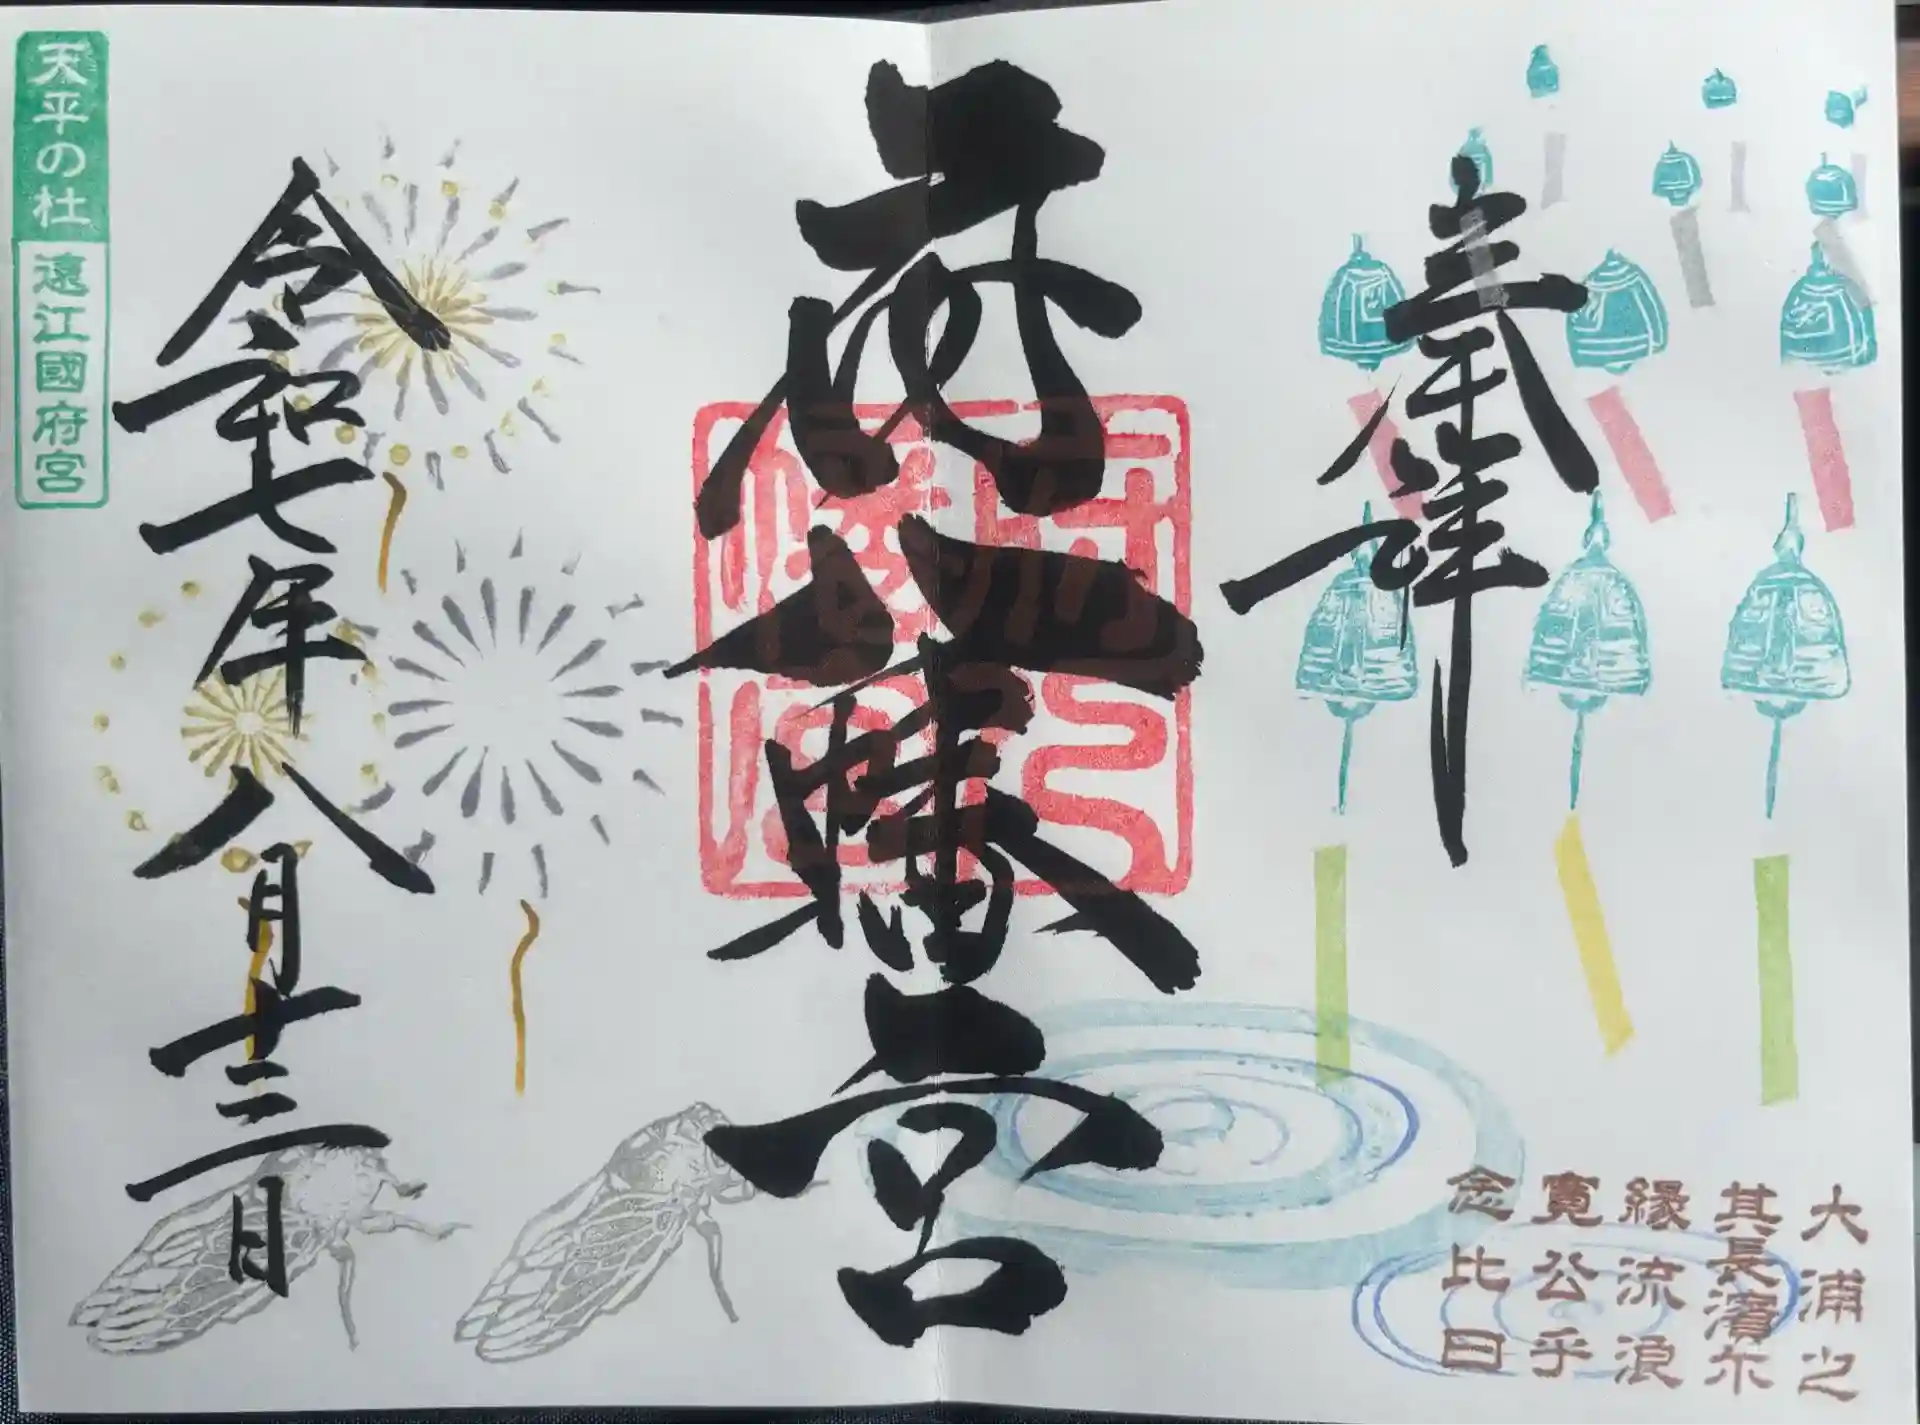 奉拝
大浦之
其長濱尓
縁流浪
寛公乎
念比日
府八幡宮
府八幡宮
令和七年八月十三日
天平の杜
遠江國府宮